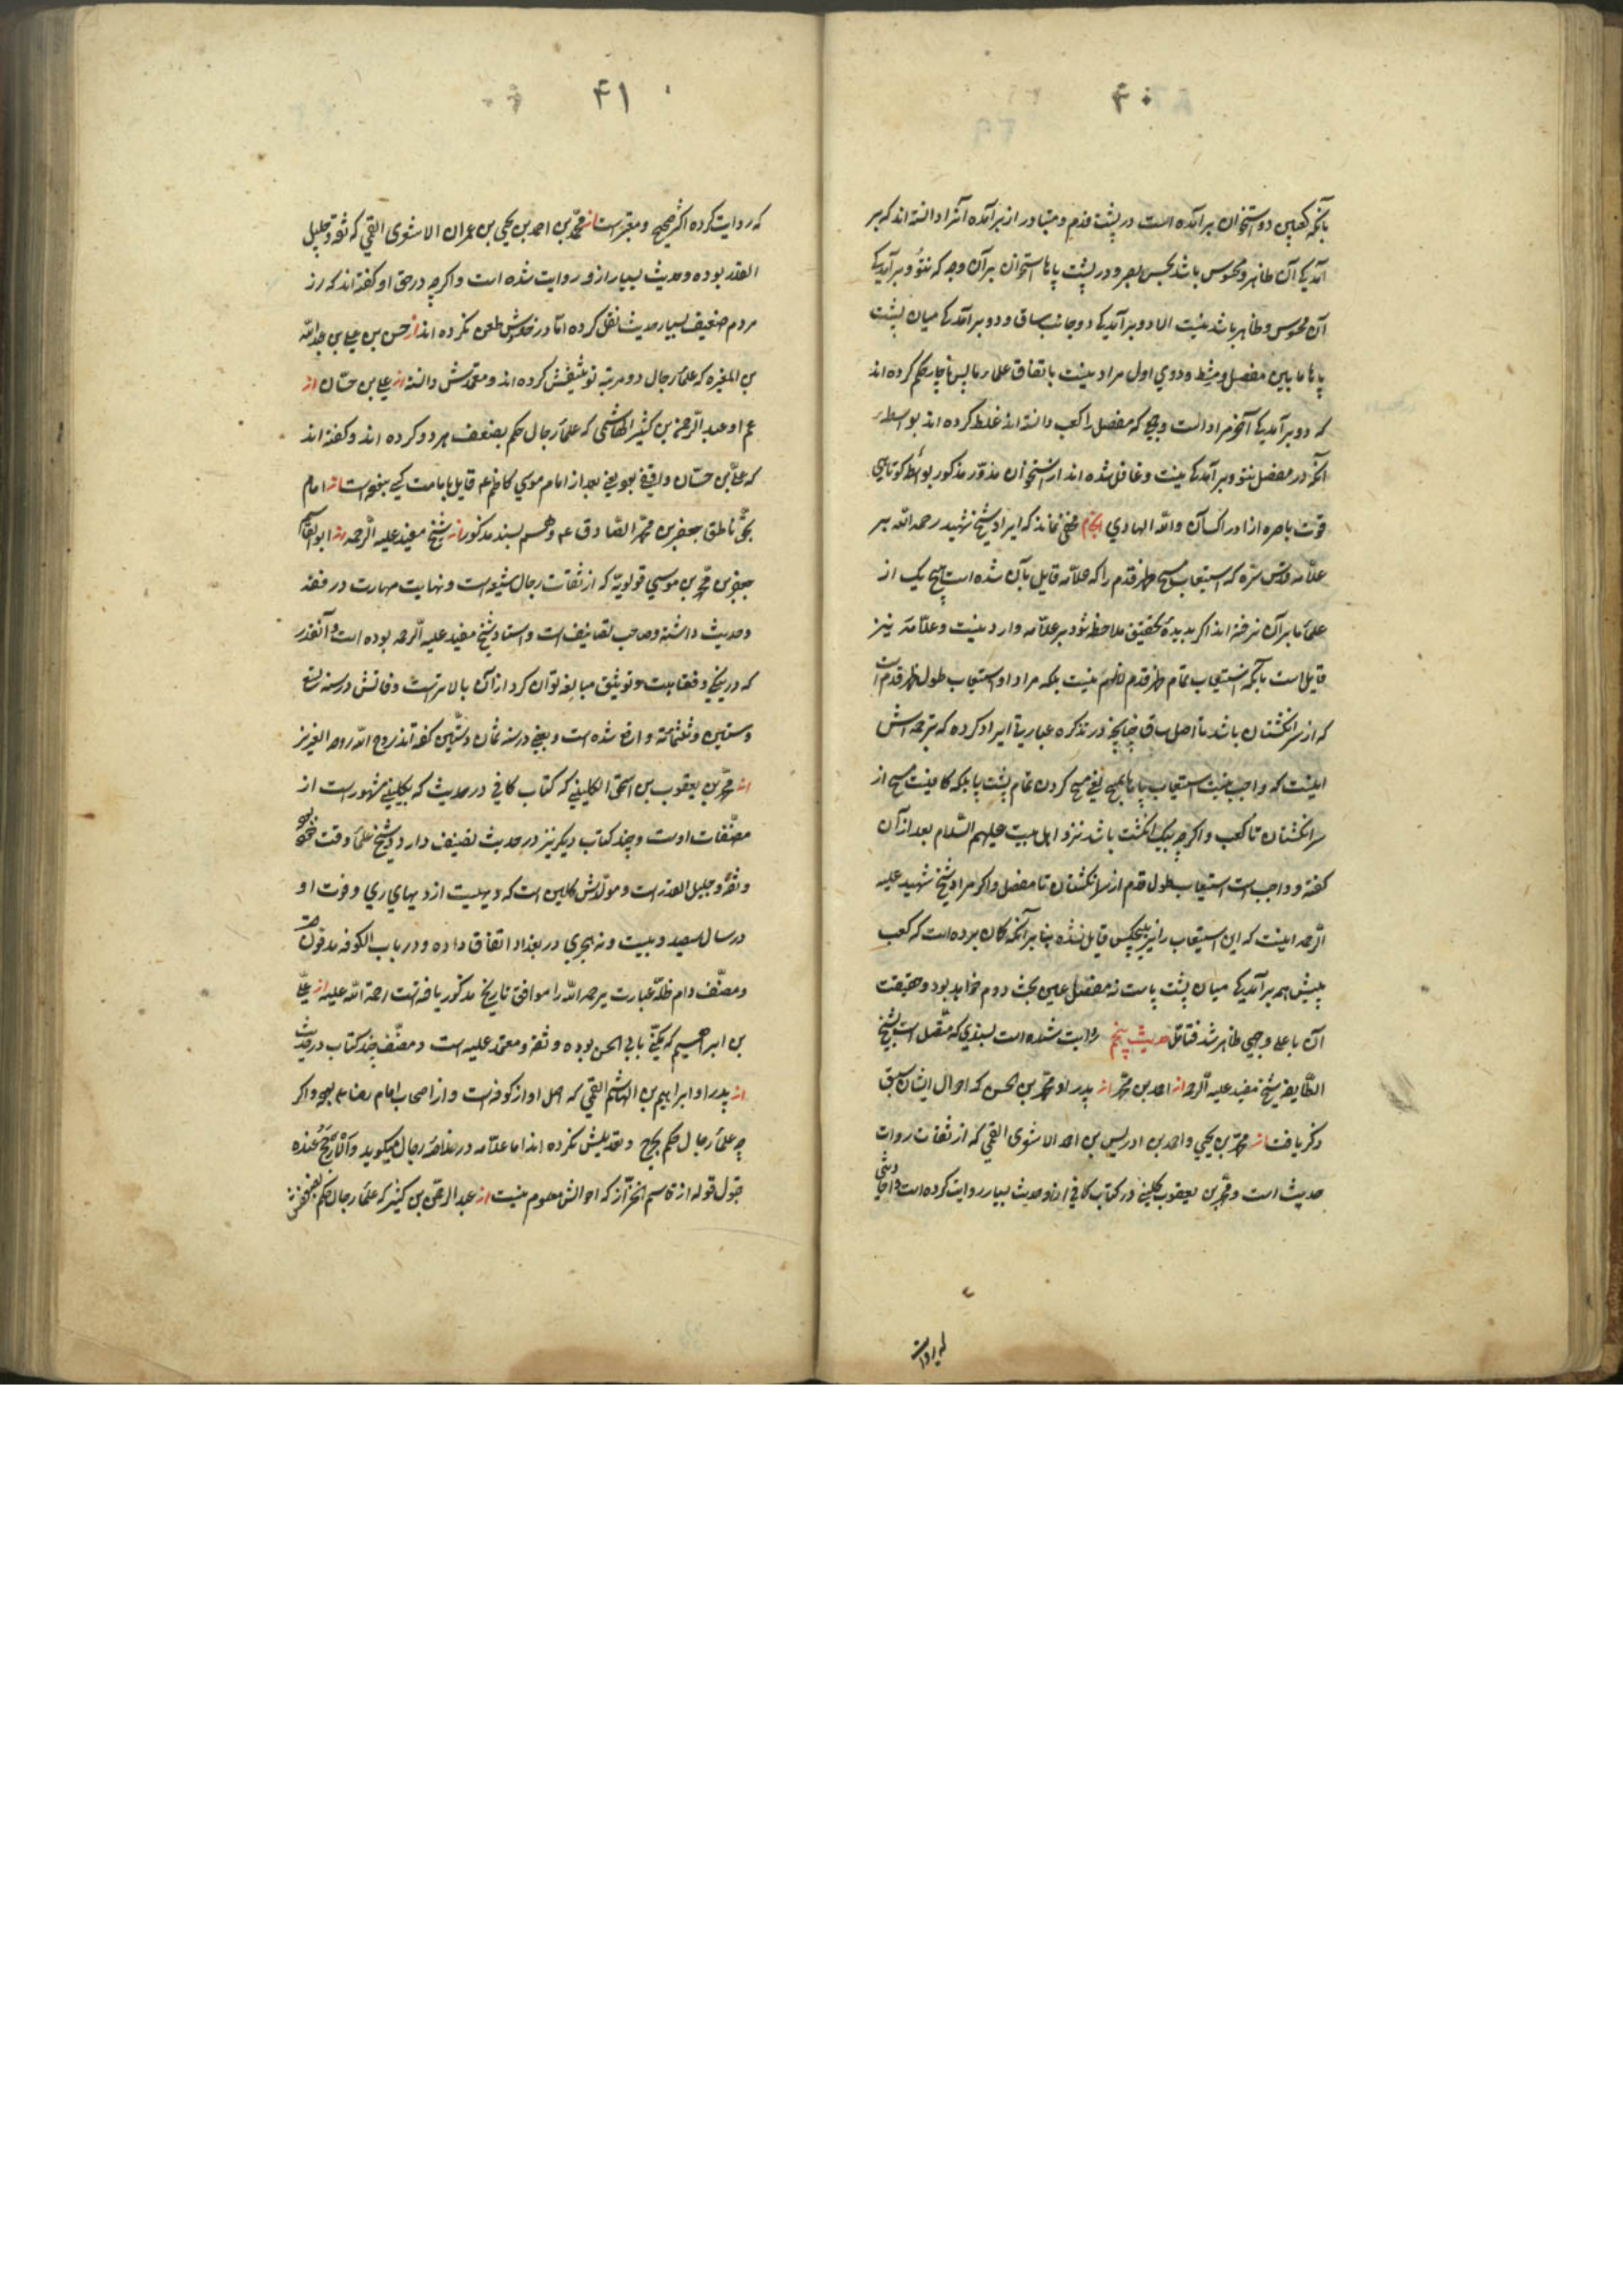 ۴۰
بآنکه کعبین دو استخوان برآمده است در پشت قدم و متبادر از برآمده آنرا دانسته اند که بر
آمدیکی آن ظاهر و محسوس باشد بحس بصر و در پشت پاها استخوان برآن وجه که نتوّ و برآمدیکی
آن محسوس و ظاهر باشد نیست الا دو برآمدیکی دو جانب ساق و دو برآمدیکی میان پشت
پاها مابین مفصل و مشط و دوی اول مراد نیست باتفاق علماء ما پس ناچار حکم کرده اند
که دو برآمدیکی آخر مراد است و جمعی که مفصل را کعب دانسته اند غلط کرده اند بواسطه
آنکه در مفصل نتو و برآمدیکی نیست و غافل شده اند از استخوان مدوّر مذکور بواسطه کوتاهی
قوت باصره از ادراک آن والله الهادی مخفی نماند که ایراد شیخ شهید رحمه الله بر
علامه قدس سرّه که استیعاب مسح ظهر قدم را که علامه قایل بآن شده است هیچ یک از
علماء ما برآن نرفته اند اکر بدیدهٔ تحقیق ملاحظه شود بر علامه وارد نیست و علامه نیز
قایل است بآنکه استیعاب تمام ظهر قدم لازم نیست بلکه مراد او استیعاب طول ظهر قدم است
که از سر انکشتان باشد تا اصل ساق چنانچه در تذکره عبارتی ایراد کرده که ترجمه اش
اینست که واجب نیست استیعاب پاها بمسح یعنی مسح کردن تمام پشت پا بلکه کافیست مسح از
سر انکشتان تا کعب و اکرچه بیک انکشت باشد نزد اهل بیت علیهم السّلام بعد از آن
کفته و واجب است استیعاب طول قدم از سر انکشتان تا مفصل و اکر مراد شیخ شهید علیه
الرّحمه اینست که این استیعاب را نیز هیچکس قایل نشده بنا بر آنکه کمان برده است که کعب
پیش همه برآمدیکی میان پشت پاست نه مفصل عین بحث دوم خواهد بود و حقیقت
آن با علی وجهی ظاهر شد فتامل حدیث پنجم روایت شده است بسندی که متصل است بشیخ
الطّایفه شیخ مفید علیه الرحمه از احمد بن محمّد از پدر او محمّد بن الحسن که احوال ایشان سبق
ذکر یافت از محمّد بن یحیی و احمد بن ادریس بن احمد الاشعری القمی که از ثقات روات
حدیث است و محمّد بن یعقوب کلینی در کتاب کافی از او حدیث بسیار روایت کرده است
که روایت
۴۱
که روایت کرده اکثر صحیح و معتبر است از محمّد بن احمد بن یحیی بن عمران الاشعری القمی که ثقه و جلیل
القدر بوده و حدیث بسیار از و روایت شده است و اکرچه در حق او کفته اند که از
مردم ضعیف بسیار حدیث نقل کرده امّا در خودش طعن نکرده اند از حسن بن علی بن عبدالله
بن المغیره که علماء رجال دو مرتبه توثیقش کرده اند و معتمدش دانسته از علی بن حسّان از
عم او عبد الرّحمن بن کثیر الهاشمی که علماء رجال حکم بضعف هر دو کرده اند و کفته اند
که علی بن حسّان واقفی بود یعنی بعد از امام موسی کاظم ع قایل بامامت کسی نبود است از امام
بحق ناطق جعفر بن محمّد الصّادق ع و هم بسند مذکور از شیخ مفید علیه الرّحمه از ابو القاسم
جعفر بن محمّد بن موسی قولویه که از ثقات رجال شیعه است و نهایت مهارت در فقه
و حدیث داشته و صاحب تصانیف است و استاد شیخ مفید علیه الرحمه بوده است و آنقدر
که در نیکی و فقاهت و توثیق مبالغه توان کرد از آن بالاترست وفاتش در سنه تسع
و ستین و ثلثمائة واقع شده است و بعضی در سنه ثمان و ستّین کفته اند روح الله روحه العزیز
از محمّد بن یعقوب بن اسحق الکلینی که کتاب کافی در حدیث که بکلینی مشهور است از
مصنّفات اوست و چند کتاب دیکر نیز در حدیث تصنیف دارد و شیخ علماء وقت خود بود
و ثقه و جلیل القدر است و مولدش کلین است که دیهیست از دیهای ری و فوت او
در سال سیصد و بیست و نه هجری در بغداد اتفاق داده و در باب الکوفه مدفون است
و مصنّف دام ظلّه عبارت یرحمه الله را موافق تاریخ مذکور یافته است رحمة الله علیه از علی
بن ابراهیم که مکنّی بابی الحسن بوده و ثقه و معتمد علیه است و مصنّف چند کتاب در حدیث
از پدر او ابراهیم بن الهاشم القمی که اصل او از کوفه است و از اصحاب امام رضا ع بوده و اکر
چه علماء رجال حکم بجرح و تعدیلش نکرده اند اما علامه در خلاصه رجال میکوید و الأرجح عنده
قبول قوله از قاسم الخزّاز که احوالش معلوم نیست از عبد الرحمن بن کثیر که علماء رجال حکم بضعفش